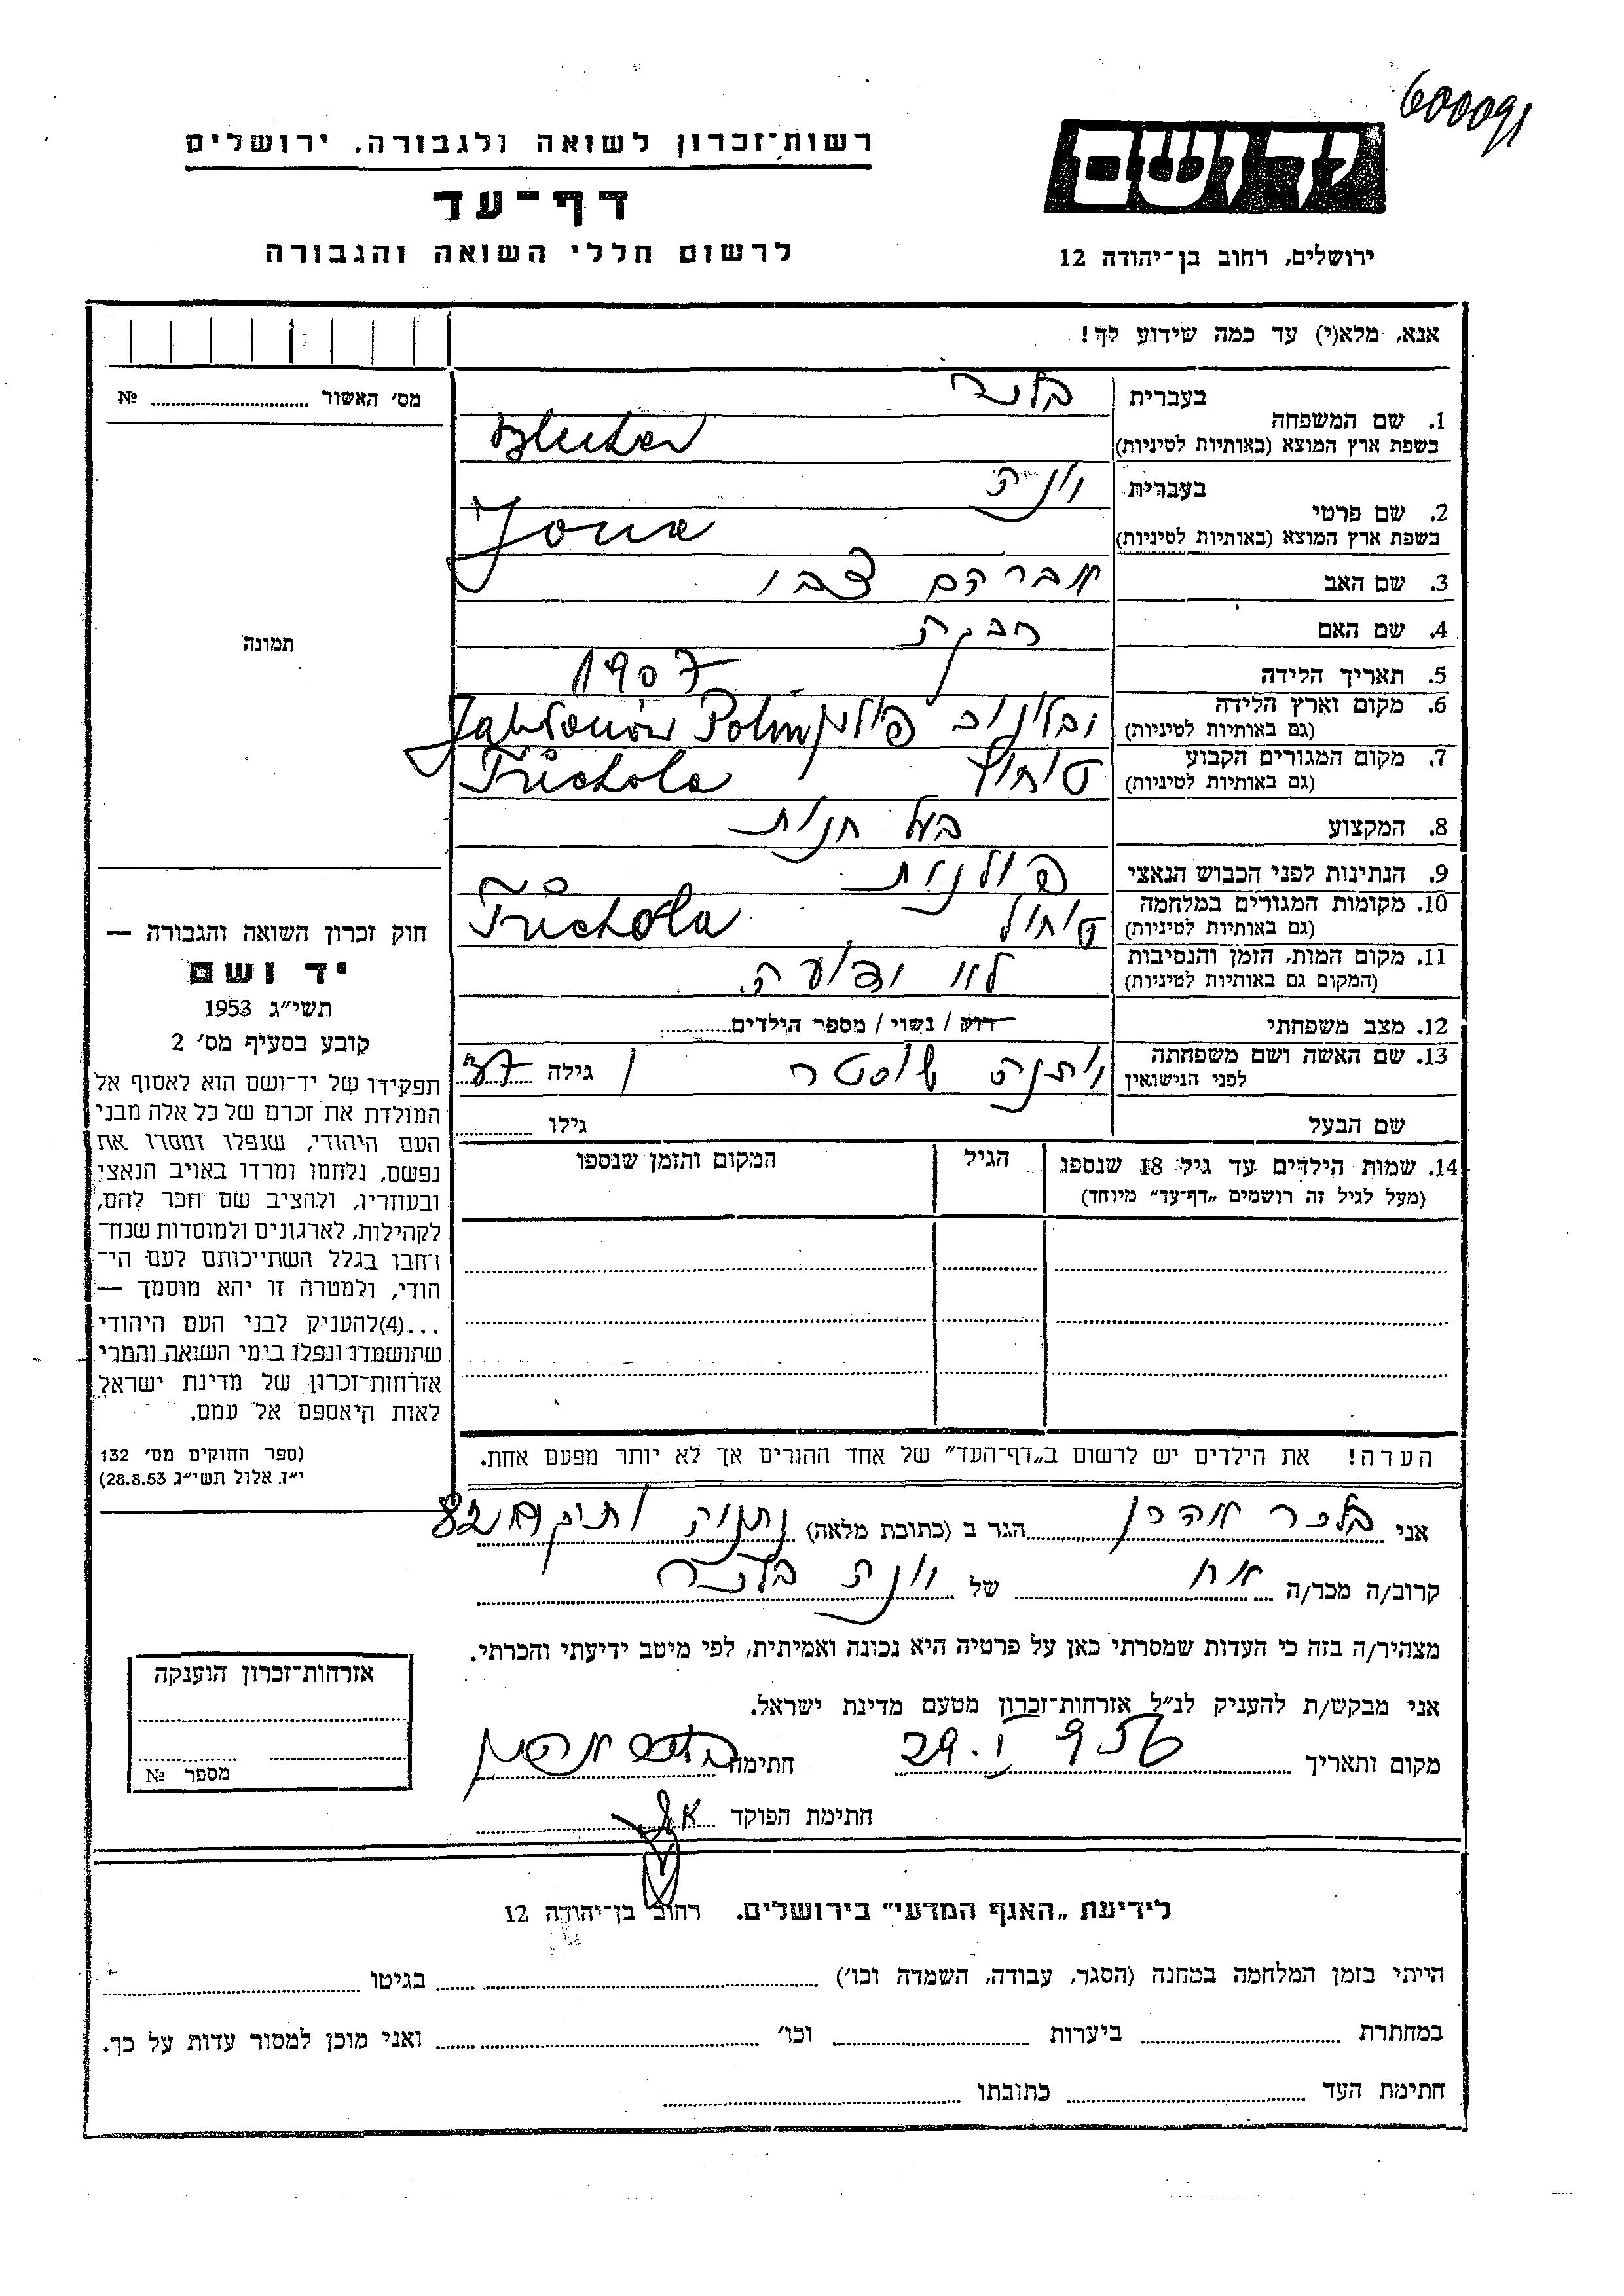 600091
יד ושם
ירושלים, רחוב בן־יהודה 12
רשות־זכרון לשואה ולגבורה, ירושלים
דף־עד
לרשום חללי השואה והגבורה
אנא, מלא(י) עד כמה שידוע לך!
מס׳ האשור № 
1. שם המשפחה
בעברית
בשפת ארץ המוצא (באותיות לטיניות)
2. שם פרטי
בעברית יונה
בשפת ארץ המוצא (באותיות לטיניות) Jona
3. שם האב אברהם צבי
4. שם האם רבקה
5. תאריך הלידה 1907
6. מקום וארץ הלידה
(גם באותיות לטיניות) פולין
7. מקום המגורים הקבוע
(גם באותיות לטיניות)
8. המקצוע בעל חנות
9. הנתינות לפני הכבוש הנאצי פולנית
10. מקומות המגורים במלחמה
(גם באותיות לטיניות)
11. מקום המות, הזמן והנסיבות
(המקום גם באותיות לטיניות) לא ידוע
12. מצב משפחתי רווק / נשוי / מספר הילדים
13. שם האשה ושם משפחתה
לפני הנישואין שוסטר גילה
שם הבעל גילו
14. שמות הילדים עד גיל 18 שנספו הגיל המקום והזמן שנספו
(מעל לגיל זה רושמים „דף־עד״ מיוחד)
הערה! את הילדים יש לרשום ב„דף־העד״ של אחד ההורים אך לא יותר מפעם אחת.
תמונה
חוק זכרון השואה והגבורה —
יד ושם
תשי״ג 1953
קובע בסעיף מס׳ 2
תפקידו של יד־ושם הוא לאסוף אל
המולדת את זכרם של כל אלה מבני
העם היהודי, שנפלו ומסרו את
נפשם, נלחמו ומרדו באויב הנאצי
ובעוזריו, ולהציב שם וזכר להם,
לקהילות, לארגונים ולמוסדות שנח־
רחבו בגלל השתייכותם לעם הי־
הודי, ולמטרה זו יהא מוסמך —
...(4) להעניק לבני העם היהודי
שהושמדו ונפלו בימי השואה והמרי
אזרחות־זכרון של מדינת ישראל
לאות היאספם אל עמם.
(ספר החוקים מס׳ 132
י״ז אלול תשי״ג 28.8.53)
אני בלכר אהרן הגר ב (כתובת מלאה) נתניה
קרוב/ה מכר/ה אח של יונה בלכר
מצהיר/ה בזה כי העדות שמסרתי כאן על פרטיה היא נכונה ואמיתית, לפי מיטב ידיעתי והכרתי.
אני מבקש/ת להעניק לנ״ל אזרחות־זכרון מטעם מדינת ישראל.
מקום ותאריך חתימה
חתימת הפוקד
אזרחות־זכרון הוענקה
מספר №
לידיעת „האגף המדעי״ בירושלים, רחוב בן־יהודה 12
הייתי בזמן המלחמה במחנה (הסגר, עבודה, השמדה וכו׳) בגיטו
במחתרת ביערות וכו׳ ואני מוכן למסור עדות על כך.
חתימת העד כתובתו